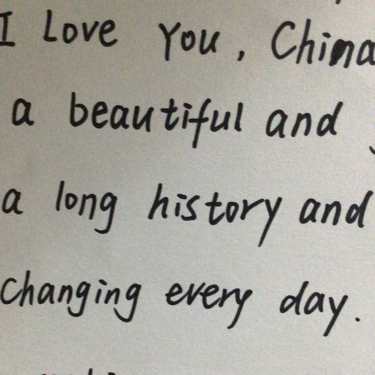 I Love You, China
a beautiful and
a long history and
changing every day.